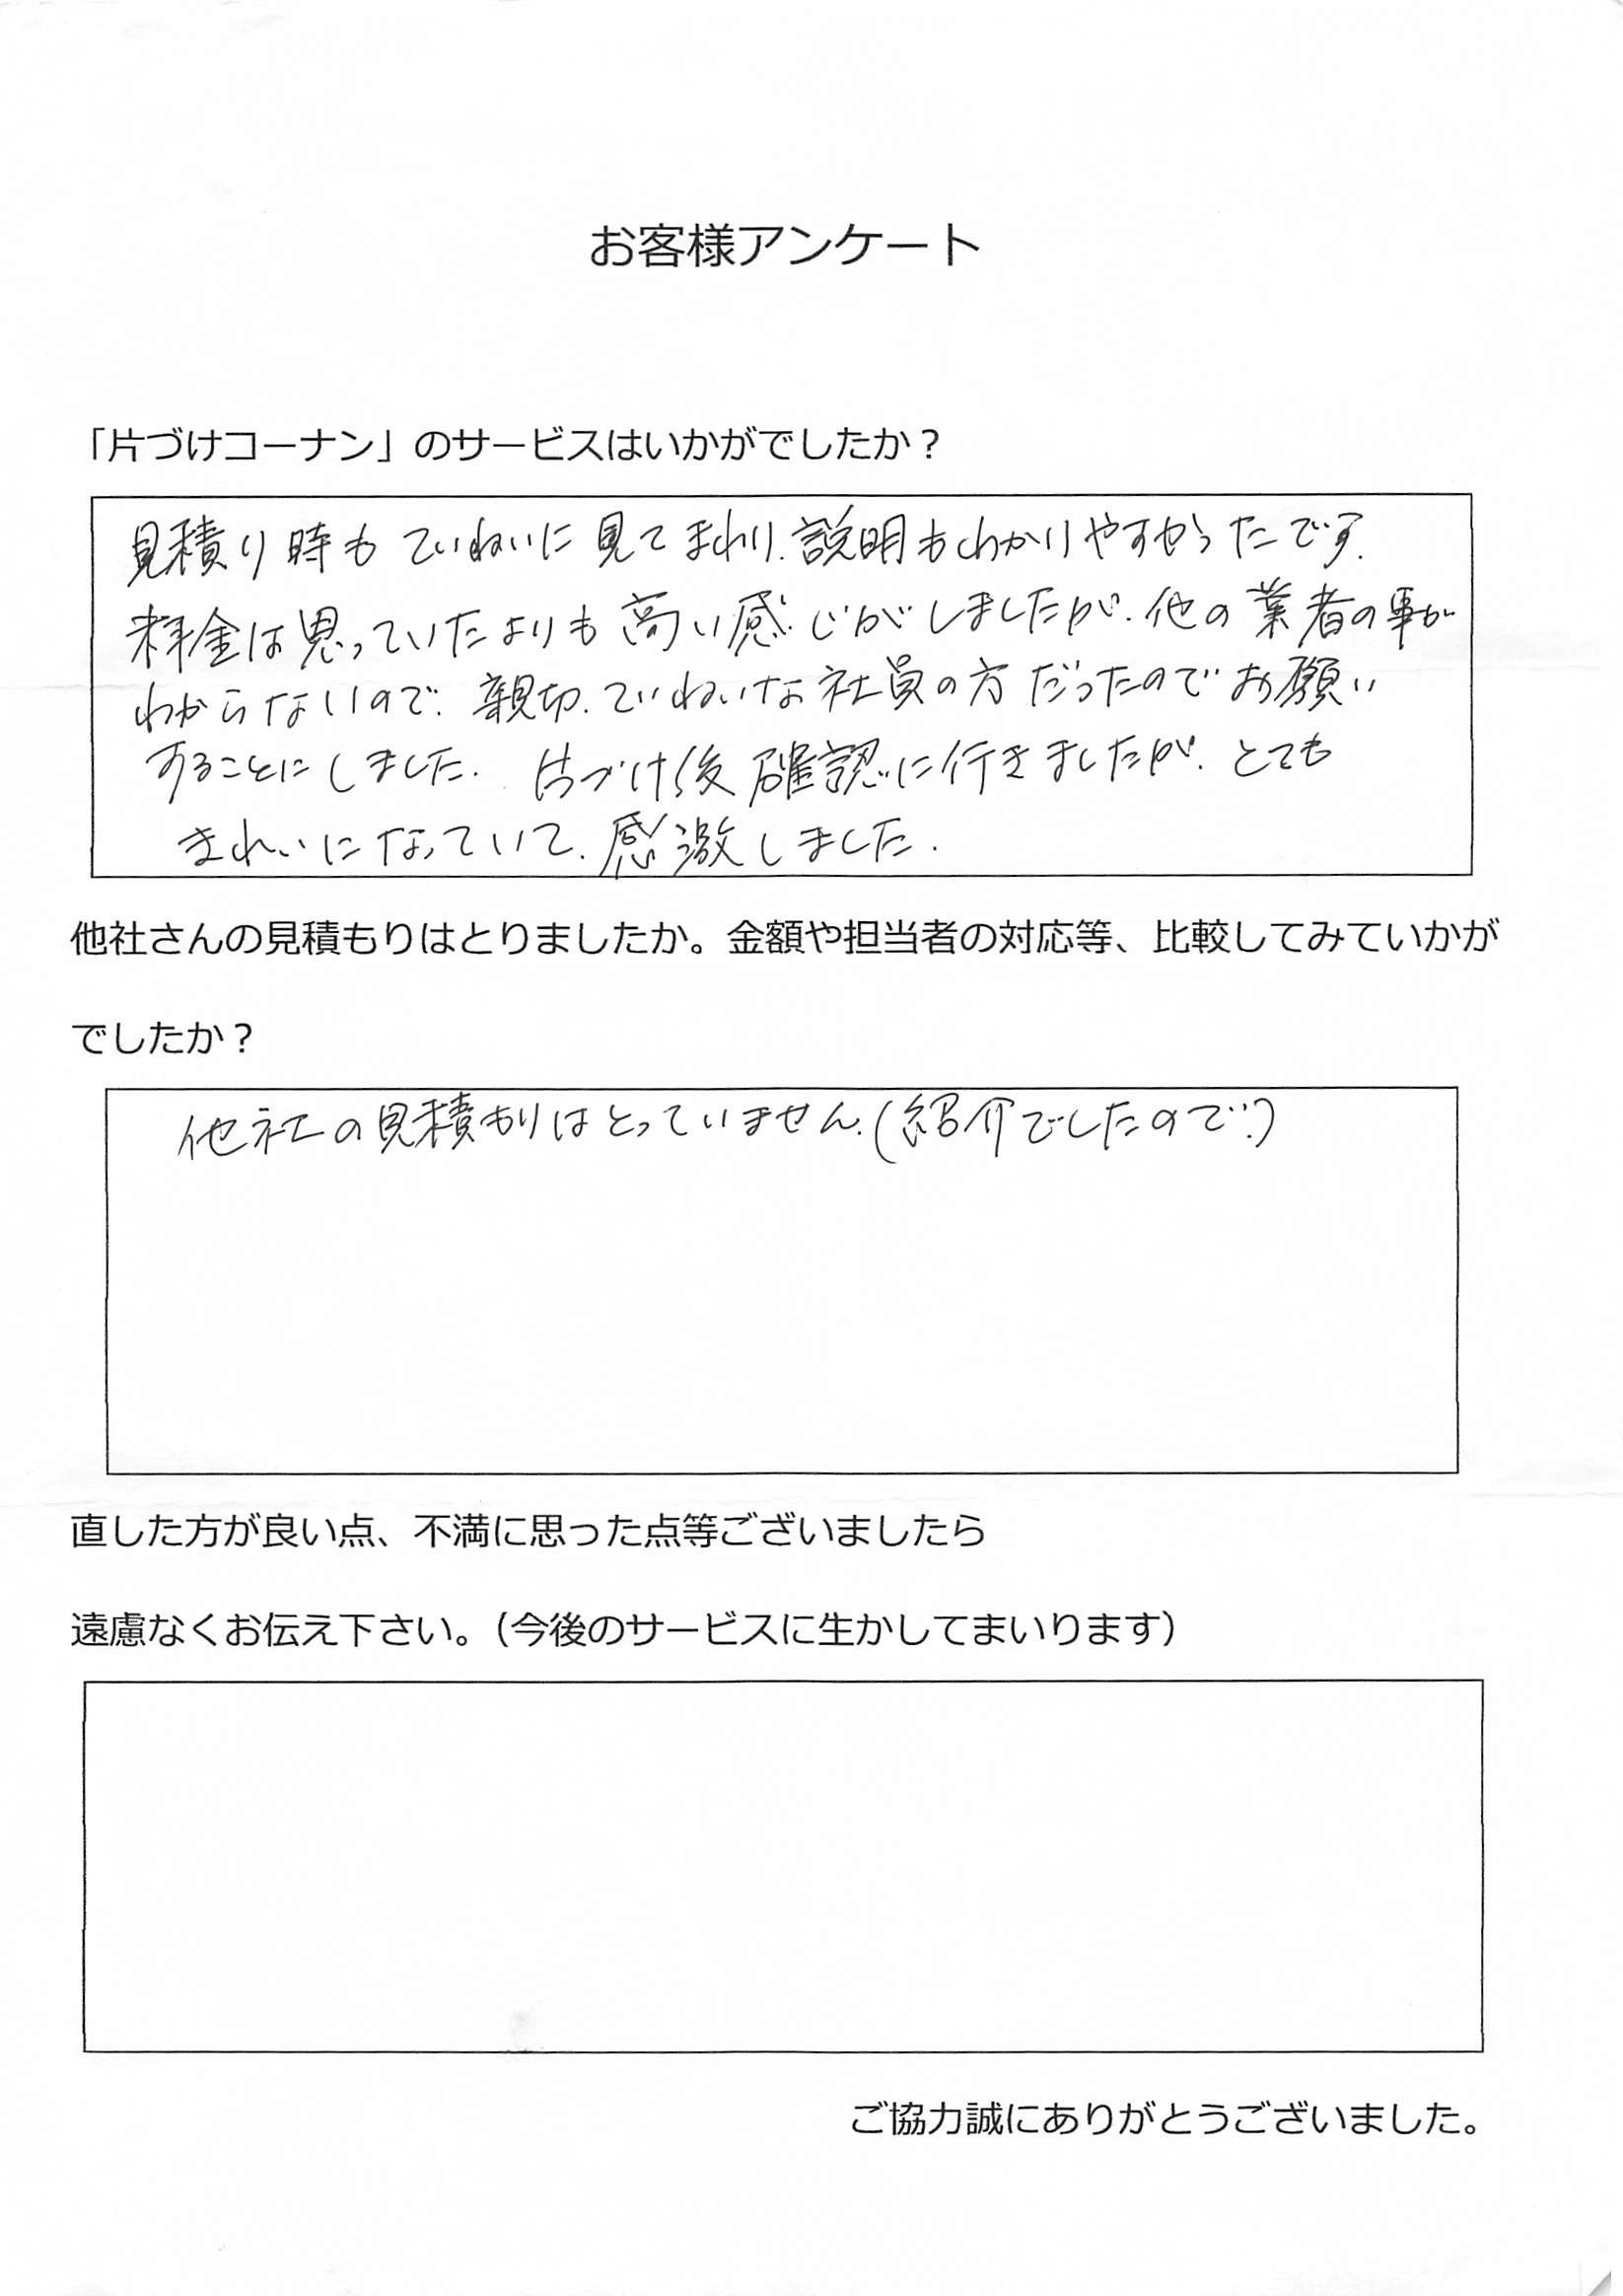 お客様アンケート
「片づけコーナン」のサービスはいかがでしたか？
見積り時もていねいに見てまわり、説明もわかりやすかったです。
料金は思っていたよりも高い感じがしましたが、他の業者の事が
わからないので、親切、ていねいな社員の方だったのでお願い
することにしました。片づけ後確認に行きましたが、とても
きれいになっていて、感激しました。
他社さんの見積もりはとりましたか。金額や担当者の対応等、比較してみていかが
でしたか？
他社の見積もりはとっていません。(紹介でしたので。)
直した方が良い点、不満に思った点等ございましたら
遠慮なくお伝え下さい。（今後のサービスに生かしてまいります）
ご協力誠にありがとうございました。